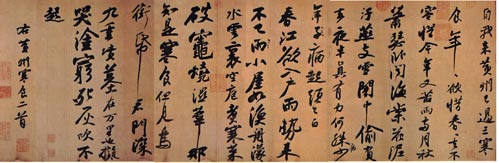 自我来黄州已過三寒
食年〻欲惜春〻去不
容惜今年又苦雨兩月秋
蕭瑟卧聞海棠花泥
汙燕支雪闇中偷負
去夜半真有力何殊
年子病起頭已白
春江欲入户雨勢来
不已雨小屋如漁舟濛〻
水雲裏空庖煑寒菜
破竈燒濕葦那
知是寒食但見烏
銜帋君門深
九重墳墓在万里也擬
哭塗窮死灰吹不
起
右黄州寒食二首